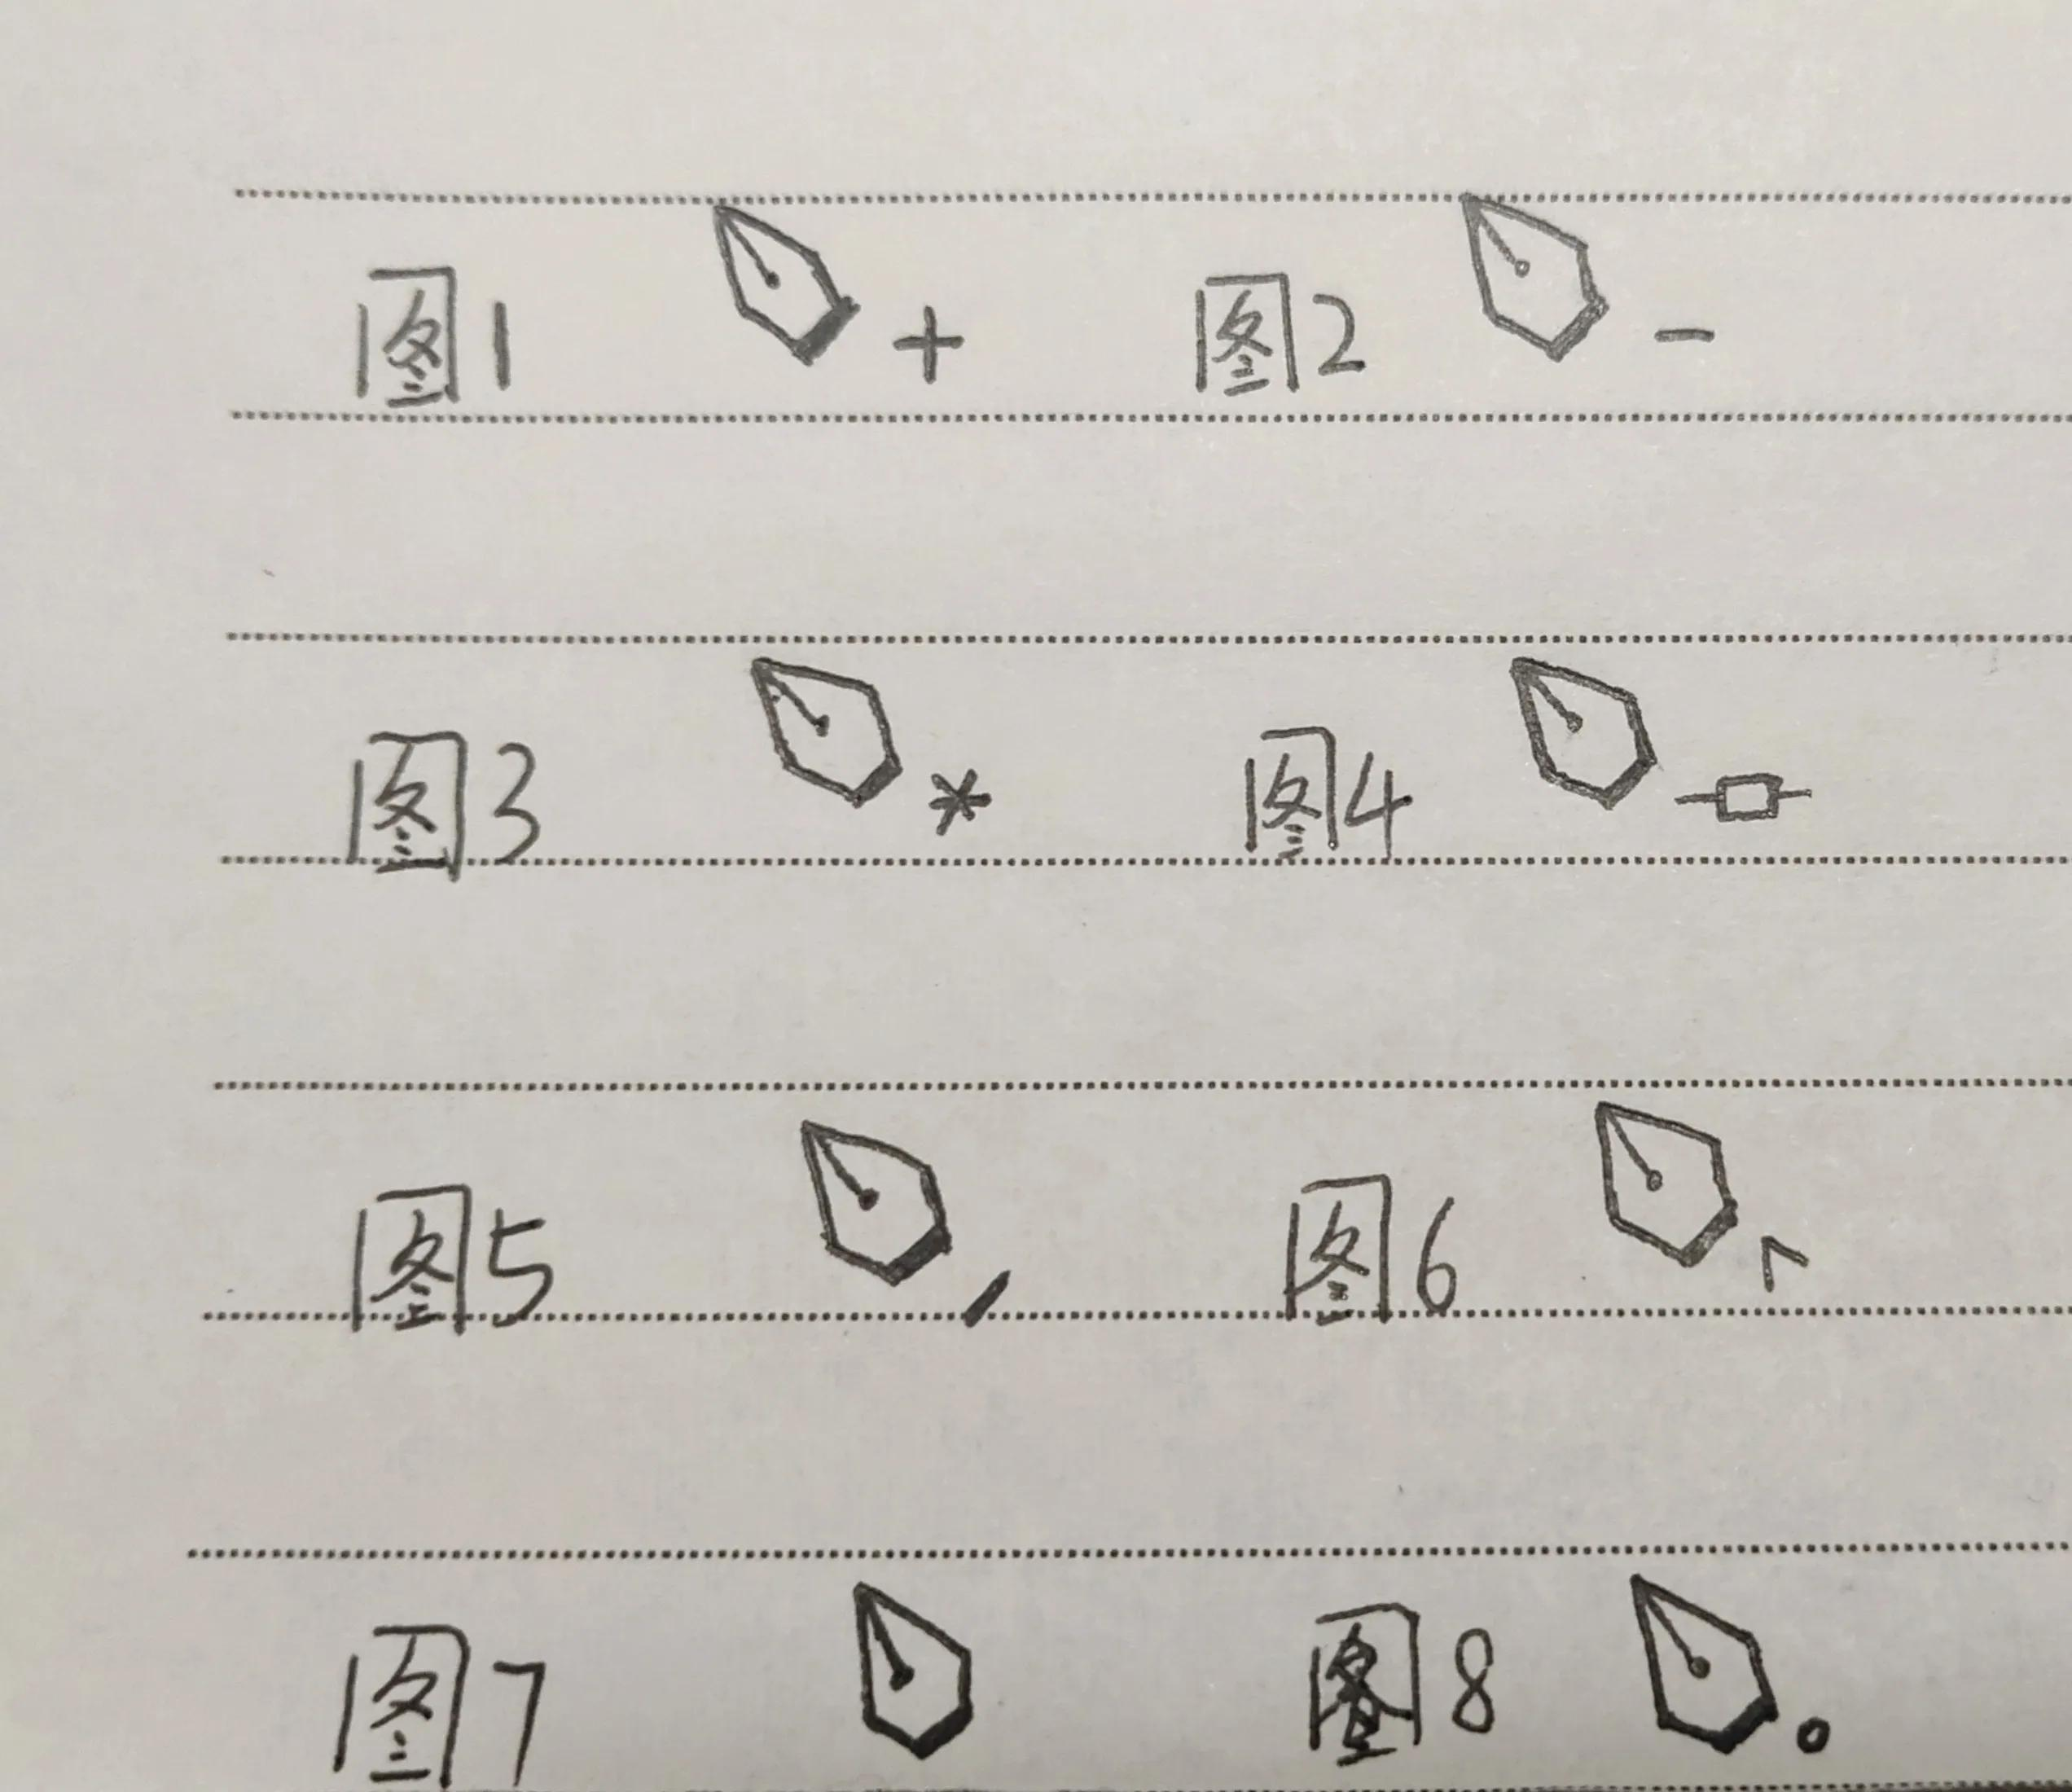 图1 + 图2 -
图3 * 图4
图5 图6
图7 图8